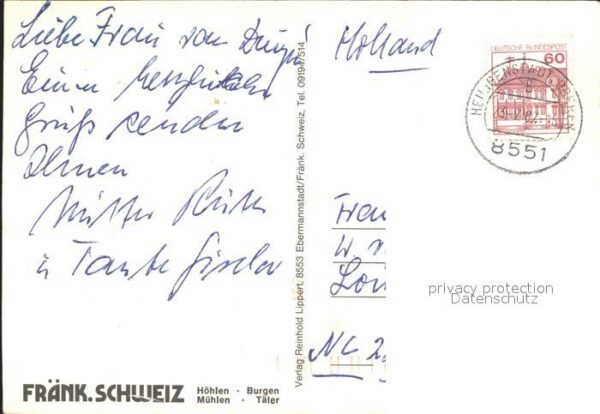 Liebe Frau van
Einen herzlichen
Gruß senden
Ihnen
Mutter
u Tante Gisela
Holland
DEUTSCHE BUNDESPOST
60
HEILIGENSTADT
8551
Verlag Reinhold Lippert, 8553 Ebermannstadt/Fränk. Schweiz, Tel. 09194/514
Frau
W. v.
Lon
NL 2
privacy protection
Datenschutz
FRÄNK. SCHWEIZ
Höhlen · Burgen
Mühlen · Täler